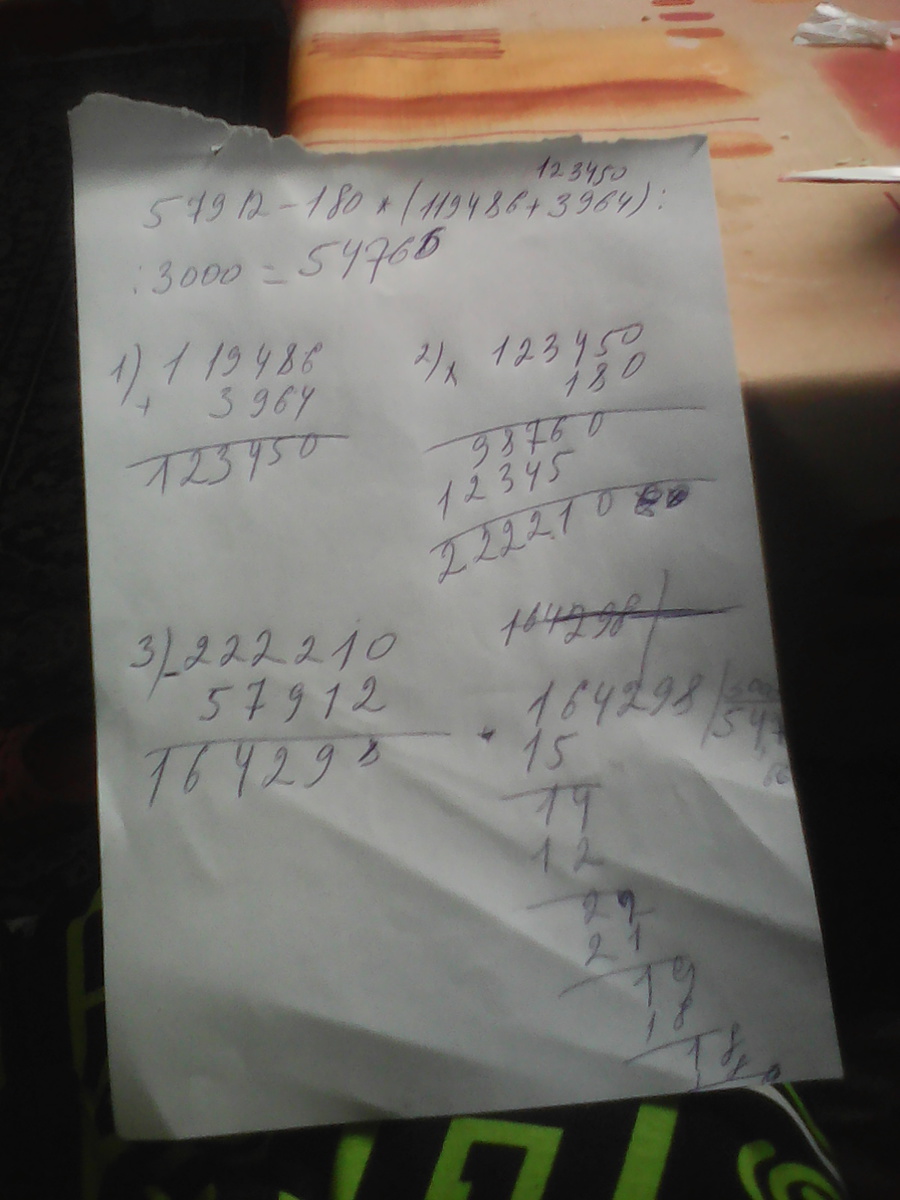 123450
57912-180*(119486+3964):
:3000=54766
1) 119486
+ 3964
123450
2) x 123450
180
98760
12345
222210
3) -222210
57912
164298
164298
164298
15
14
12
22
21
19
18
18